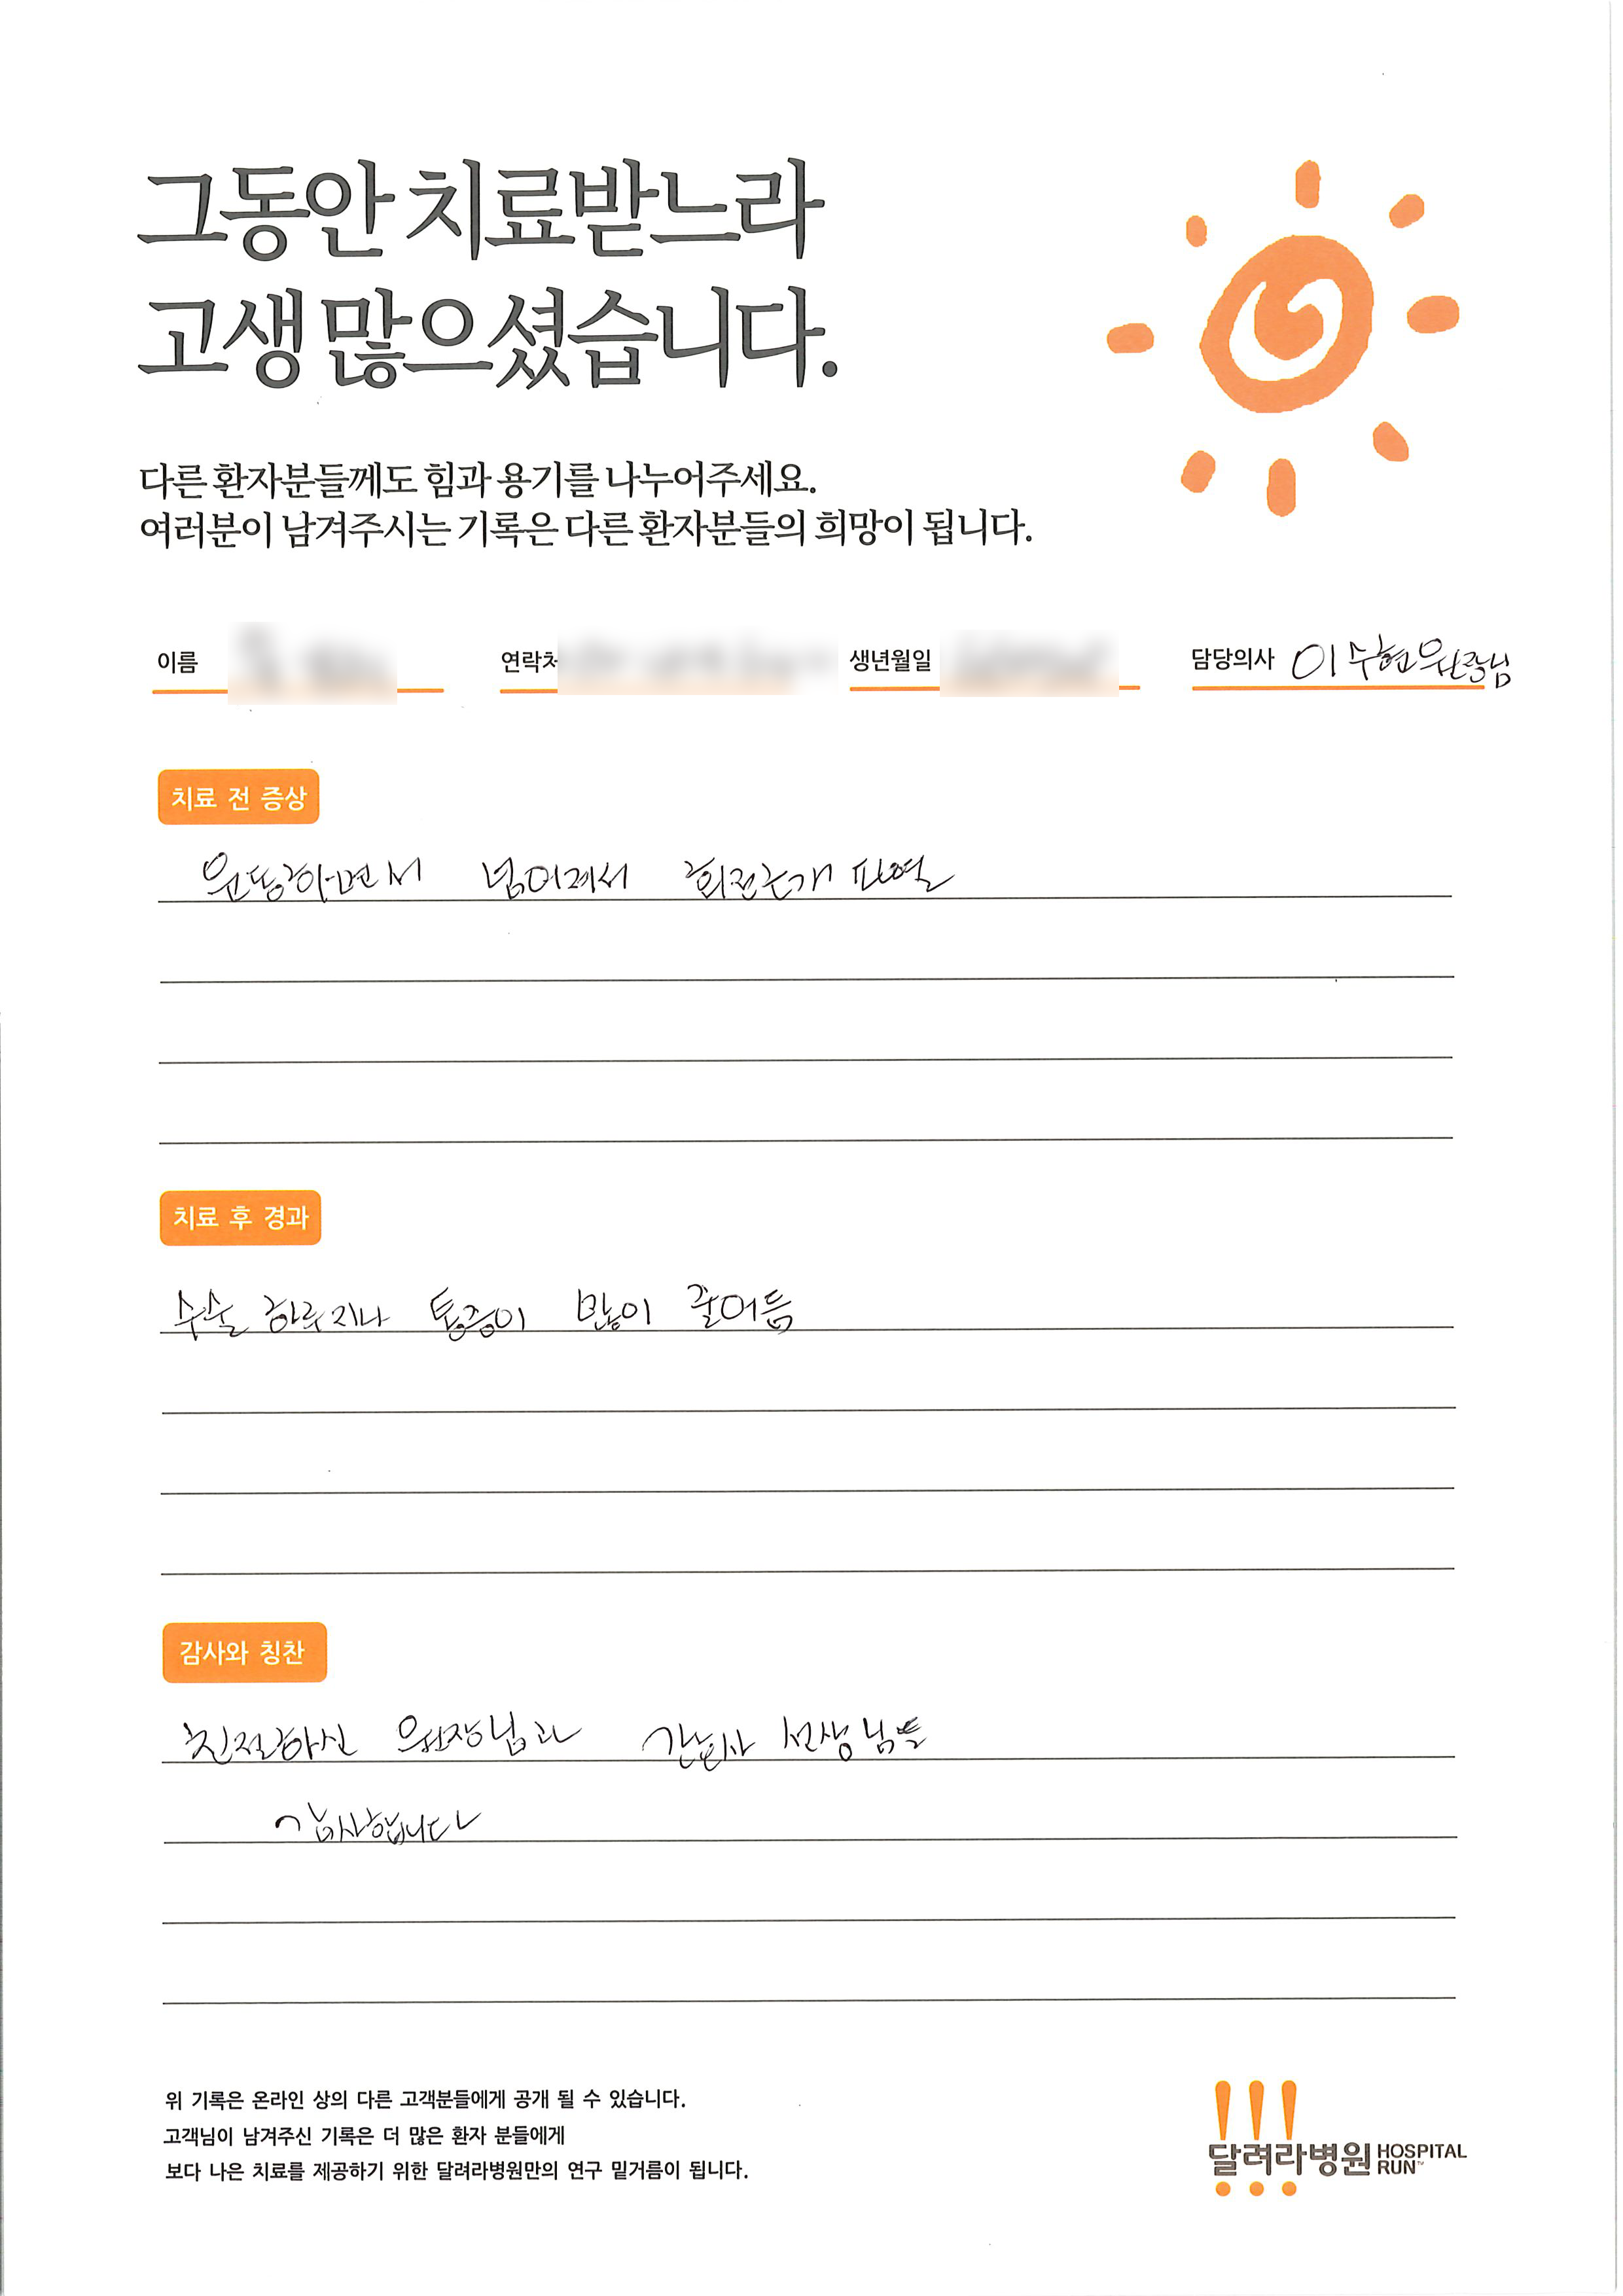 그동안 치료받느라
고생 많으셨습니다.
다른 환자분들께도 힘과 용기를 나누어주세요.
여러분이 남겨주시는 기록은 다른 환자분들의 희망이 됩니다.
이름 연락처 생년월일 담당의사 이수현원장님
치료 전 증상
운동하면서 넘어져서 회전근개 파열
치료 후 경과
수술 하루 지나 통증이 많이 줄어듬
감사와 칭찬
친절하신 원장님과 간호사 선생님들
감사합니다
위 기록은 온라인 상의 다른 고객분들에게 공개 될 수 있습니다.
고객님이 남겨주신 기록은 더 많은 환자 분들에게
보다 나은 치료를 제공하기 위한 달려라병원만의 연구 밑거름이 됩니다.
달려라병원 HOSPITAL
RUN™